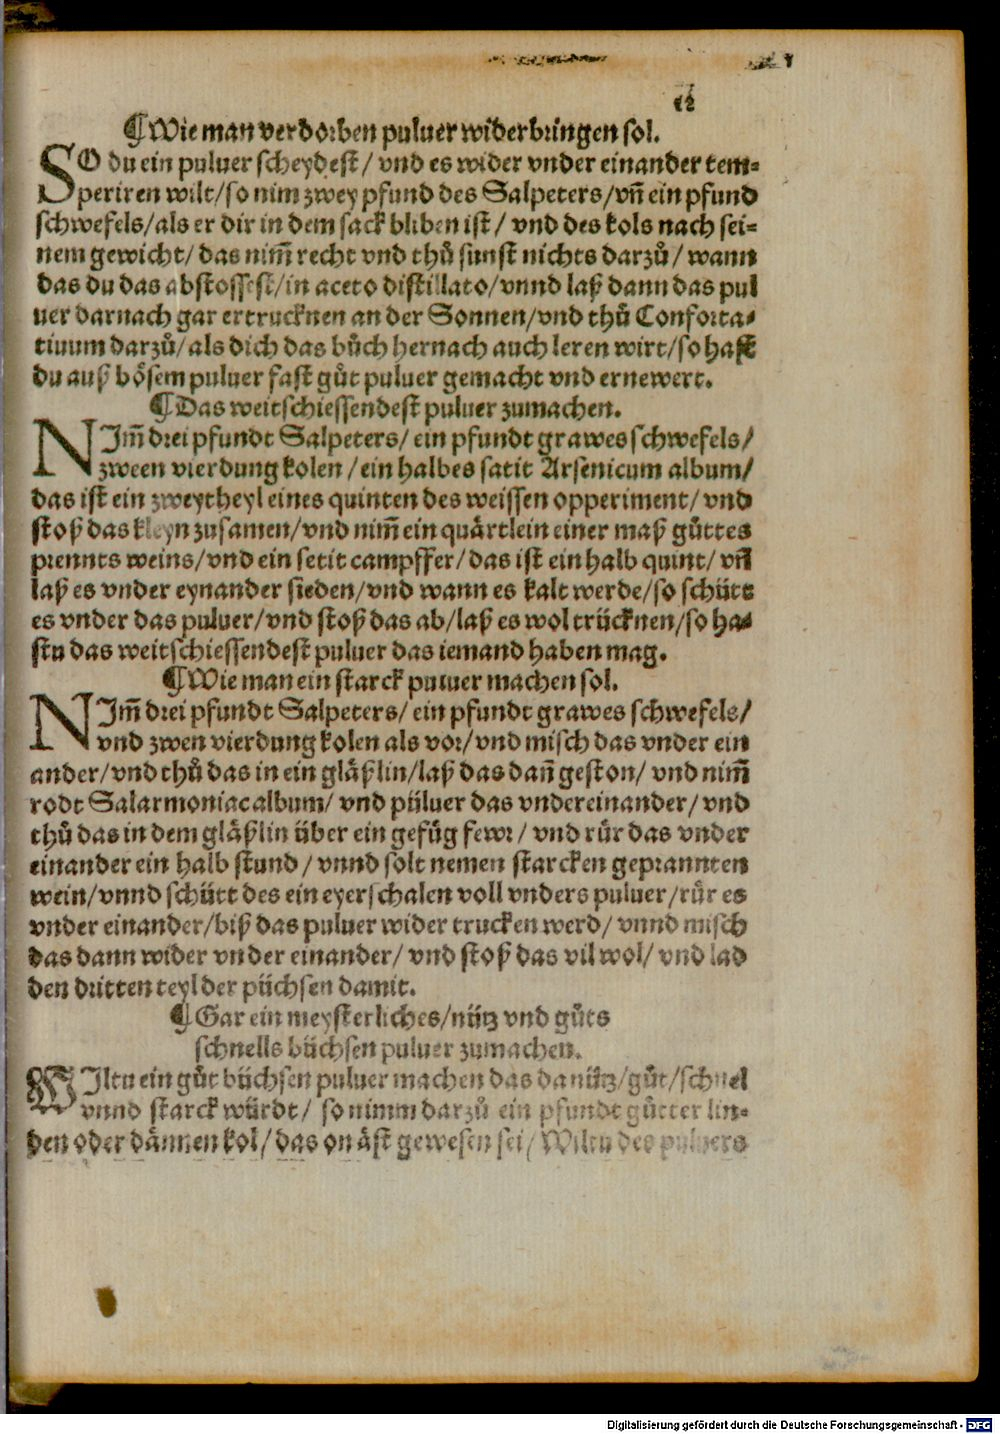 12
¶ Wie man verdorben puluer widerbringen sol.
SO du ein puluer scheydest/ vnd es wider vnder einander tem⸗
periren wilt/ so nim zwey pfund des Salpeters/ vñ ein pfund
schwefels/ als er dir in dem sack bliben ist/ vnd des kols nach sei⸗
nem gewicht/ das nim̃ recht vnd thů sunst nichts darzů/ wann
das du das abstossest/ in aceto distillato/ vnnd laß dann das pul
uer darnach gar ertrucknen an der Sonnen/ vnd thů Conforta⸗
tiuum darzů/ als dich das bůch hernach auch leren wirt/ so hast
du auß bösem puluer fast gůt puluer gemacht vnd ernewert.
¶ Das weitschiessendest puluer zumachen.
NIm̃ drei pfundt Salpeters/ ein pfundt grawes schwefels/
zween vierdung kolen/ ein halbes satit Arsenicum album/
das ist ein zweytheyl eines quinten des weissen opperiment/ vnd
stoß das kleyn zusamen/ vnd nim̃ ein quärtlein einer maß gůttes
prennts weins/ vnd ein setit campffer/ das ist ein halb quint/ vñ
laß es vnder eynander sieden/ vnd wann es kalt werde/ so schütt
es vnder das puluer/ vnd stoß das ab/ laß es wol trücknen/ so ha⸗
stu das weitschiessendest puluer das iemand haben mag.
¶ Wie man ein starck puluer machen sol.
NIm̃ drei pfundt Salpeters/ ein pfundt grawes schwefels/
vnd zwen vierdung kolen als vor/ vnd misch das vnder ein
ander/ vnd thů das in ein gläßlin/ laß das dañ geston/ vnd nim̃
rodt Salarmoniac album/ vnd püluer das vndereinander/ vnd
thů das in dem gläßlin über ein gefůg fewr/ vnd rür das vnder
einander ein halb stund/ vnnd solt nemen starcken geprannten
wein/ vnnd schütt des ein eyerschalen voll vnders puluer/ rür es
vnder einander/ biß das puluer wider trucken werd/ vnnd misch
das dann wider vnder einander/ vnd stoß das vil wol/ vnd lad
den dritten teyl der püchsen damit.
¶ Gar ein meysterliches/ nütz vnd gůts
schnells büchsen puluer zumachen.
WIltu ein gůt büchsen puluer machen das da nütz/ gůt/ schnel
vnnd starck würdt/ so nimm darzů ein pfundt gůtter lin⸗
den oder dännen kol/ das on äst gewesen sei/ Wiltu des puluers
Digitalisierung gefördert durch die Deutsche Forschungsgemeinschaft - DFG